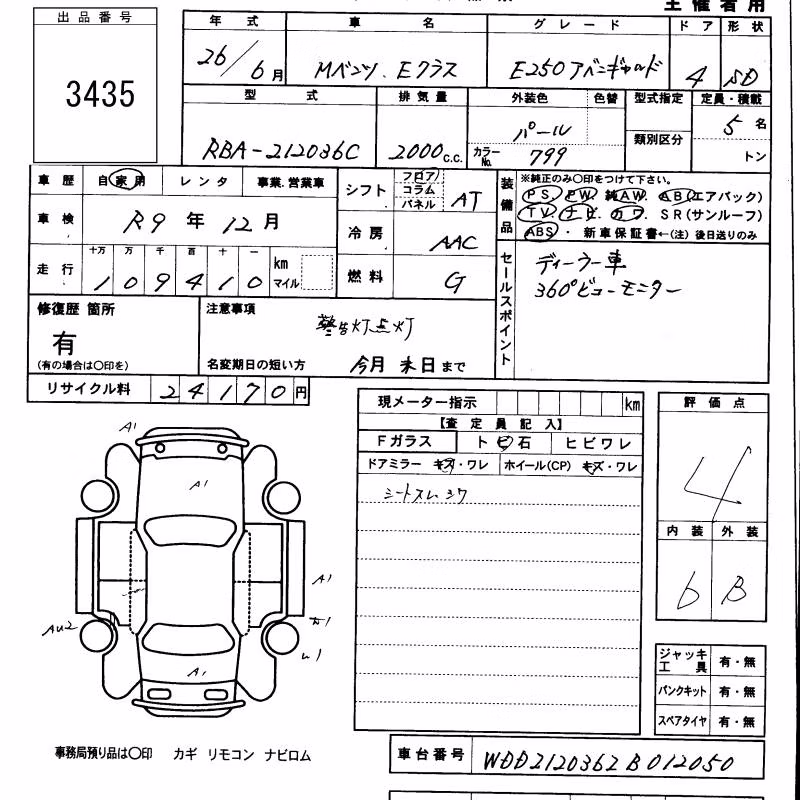 主催者用
出品番号
3435
年式 車名 グレード ドア 形状
26/6月 Mベンツ.Eクラス E250アバンギャルド 4 SD
型式 排気量 外装色 色替 型式指定 定員・積載
RBA-212036C 2000c.c. パール 類別区分 5名
カラーNo. 799 トン
車歴 自家用 レンタ 事業.営業車
シフト フロア コラム パネル AT
車検 R9年12月
冷房 AAC
走行 十万 万 千 百 十 一 km マイル
109410
燃料 G
装備品
※純正のみ〇印をつけて下さい。
PS. PW. 純AW. AB(エアバック)
TV. ナビ. カワ. SR(サンルーフ)
ABS・新車保証書←(注)後日送りのみ
セールスポイント
ディーラー車
360°ビューモニター
修復歴 箇所
有
(有の場合は〇印を)
注意事項
警告灯点灯
名変期日の短い方 今月末日まで
リサイクル料 24170円
現メーター指示 km
【査定員記入】
Fガラス トビ石 ヒビワレ
ドアミラー キズ・ワレ ホイール(CP) キズ・ワレ
シートスレ シワ
評価点
4
内装 外装
6 B
A1
A1
A1
AU2
A1
ジャッキ工具 有・無
パンクキット 有・無
スペアタイヤ 有・無
事務局預り品は〇印 カギ リモコン ナビロム
車台番号 WDD2120362B012050